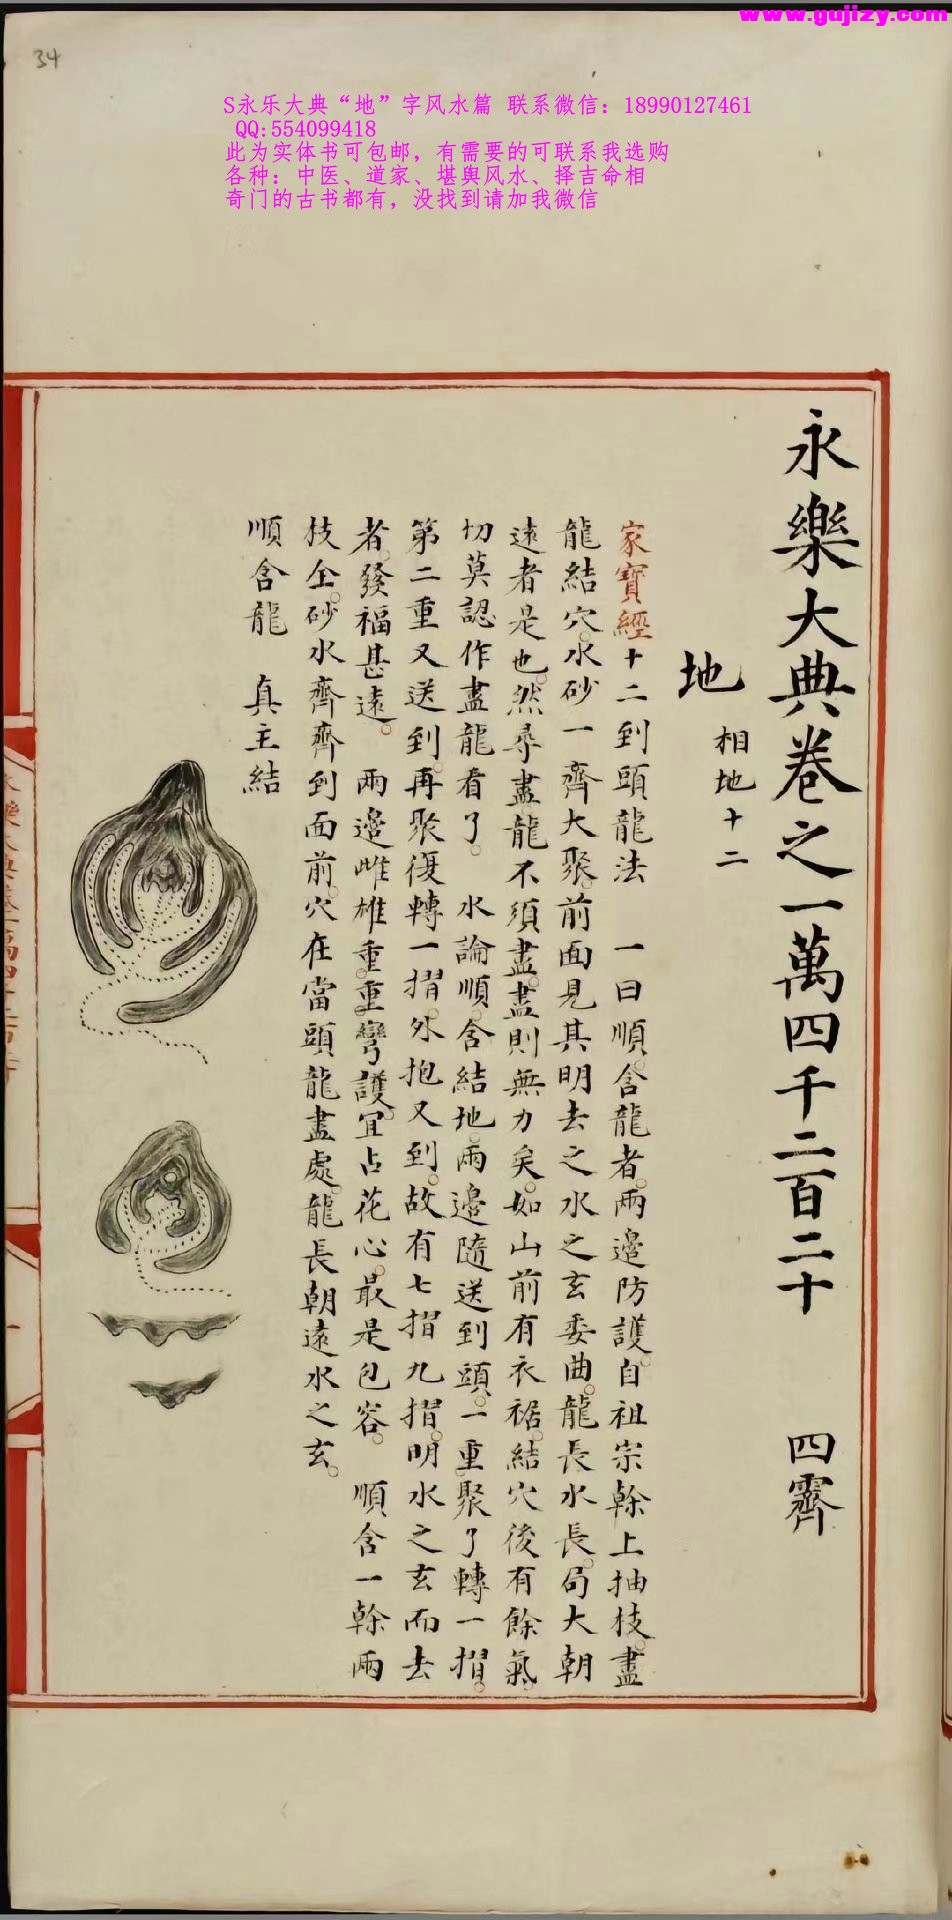 www.gujizy.com
34
S永乐大典“地”字风水篇 联系微信：18990127461
QQ:554099418
此为实体书可包邮，有需要的可联系我选购
各种：中医、道家、堪舆风水、择吉命相
奇门的古书都有，没找到请加我微信
永樂大典卷之一萬四千二百二十 四霽
地 相地十二
家寶經十二到頭龍法 一曰順含龍者。兩邊防護。自祖宗榦上抽枝。盡
龍結穴。水砂一齊大聚。前面見其明去之水之玄委曲。龍長水長。局大朝
遠者是也。然尋盡龍不須盡。盡則無力矣。如山前有衣裾。結穴後有餘氣。
切莫認作盡龍看了。 水論順含結地。兩邊隨送到頭。一重聚了轉一摺。
第二重又送到。再聚復轉一摺。外抱又到。故有七摺九摺。明水之玄而去
者。發福甚遠。 兩邊雌雄重重彎護。宜占花心。最是包容。 順含一榦兩
枝仝。砂水齊齊到面前。穴在當頭龍盡處。龍長朝遠水之玄。
順含龍 真主結